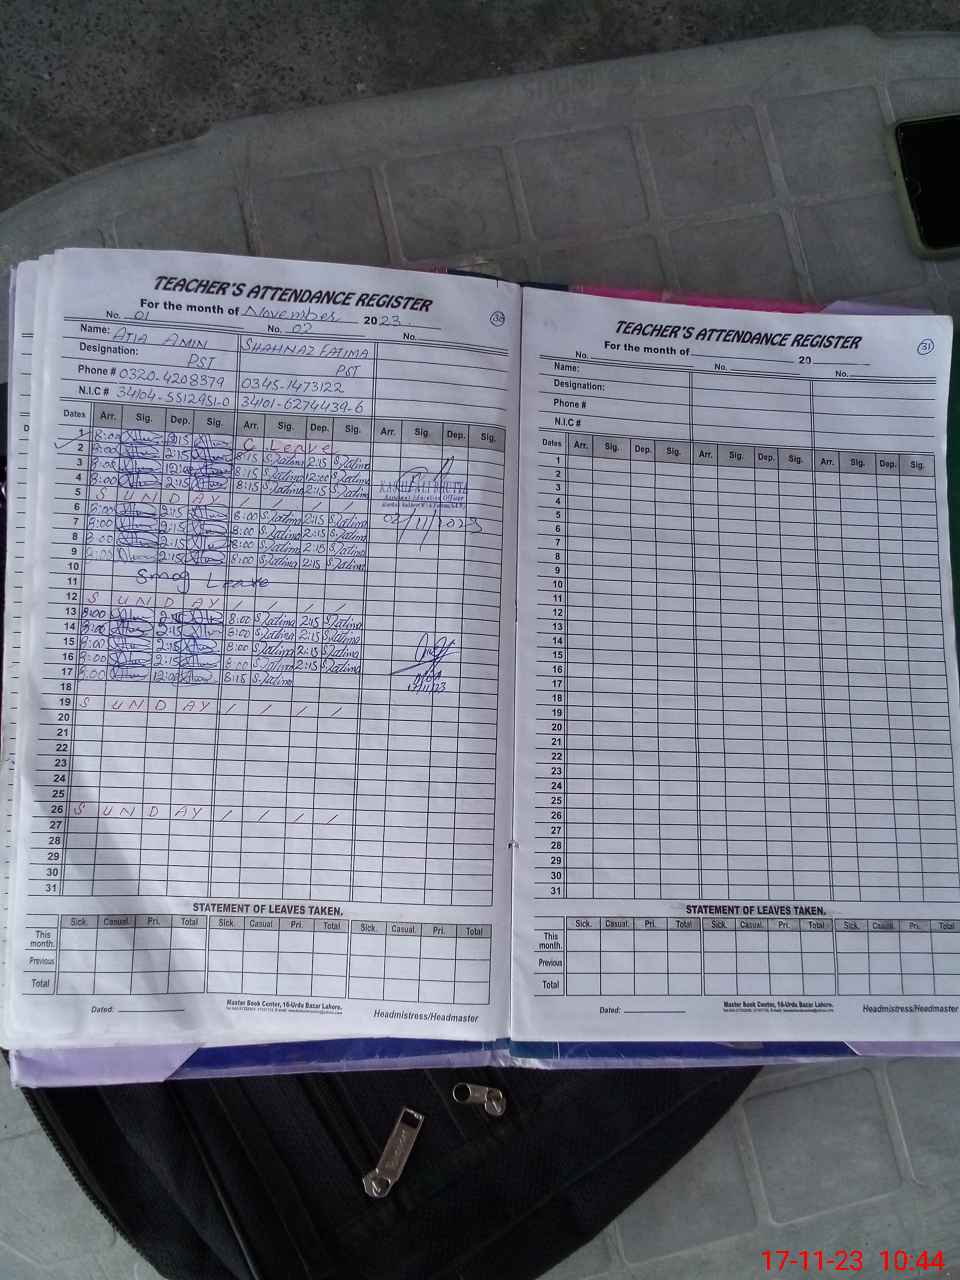 TEACHER'S ATTENDANCE REGISTER
For the month of November 2023
30
No. 01 No. 02 No.
Name: ATIA AMIN SHAHNAZ FATIMA
Designation: PST PST
Phone # 0320-4208379 0345-1473122
N.I.C # 34104-5512951-0 34101-6274439-6
Dates Arr. Sig. Dep. Sig. Arr. Sig. Dep. Sig. Arr. Sig. Dep. Sig.
1 8:00 2:15 C. Leave
2 8:00 2:15 8:15 S.Fatima 2:15 S.Fatima
3 8:00 12:00 8:15 S.Fatima 12:00 S.Fatima
4 8:00 2:15 8:15 S.Fatima 2:15 S.Fatima
5 S U N D A Y / / / /
6 8:00 2:15 8:00 S.Fatima 2:15 S.Fatima
7 8:00 2:15 8:00 S.Fatima 2:15 S.Fatima
8 8:00 2:15 8:00 S.Fatima 2:15 S.Fatima
9 8:00 2:15 8:00 S.Fatima 2:15 S.Fatima
10
11 Smog Leave
12 S U N D A Y / / / /
13 8:00 8:00 S.Fatima 2:15 S.Fatima
14 8:00 2:15 8:00 S.Fatima 2:15 S.Fatima
15 8:00 2:15 8:00 S.Fatima 2:15 S.Fatima
16 8:00 2:15 8:00 S.Fatima 2:15 S.Fatima
17 8:00 12:00 8:15 S.Fatima
17/11/23
18
19 S U N D A Y / / / /
20
21
22
23
24
25
26 S U N D A Y / / / /
27
28
29
30
31
STATEMENT OF LEAVES TAKEN.
Sick. Casual. Pri. Total Sick. Casual Pri. Total Sick. Casual. Pri. Total
This month.
Previous
Total
Dated:
Master Book Center, 16-Urdu Bazar Lahore.
Headmistress/Headmaster
TEACHER'S ATTENDANCE REGISTER
For the month of 20
31
No. No. No.
Name:
Designation:
Phone #
N.I.C #
Dates Arr. Sig. Dep. Sig. Arr. Sig. Dep. Sig. Arr. Sig. Dep. Sig.
1
2
3
4
5
6
7
8
9
10
11
12
13
14
15
16
17
18
19
20
21
22
23
24
25
26
27
28
29
30
31
STATEMENT OF LEAVES TAKEN.
Sick. Casual. Pri. Total Sick. Casual. Pri. Total Sick. Casual. Pri. Total
This month.
Previous
Total
Dated:
Master Book Center, 16-Urdu Bazar Lahore.
Headmistress/Headmaster
17-11-23 10:44